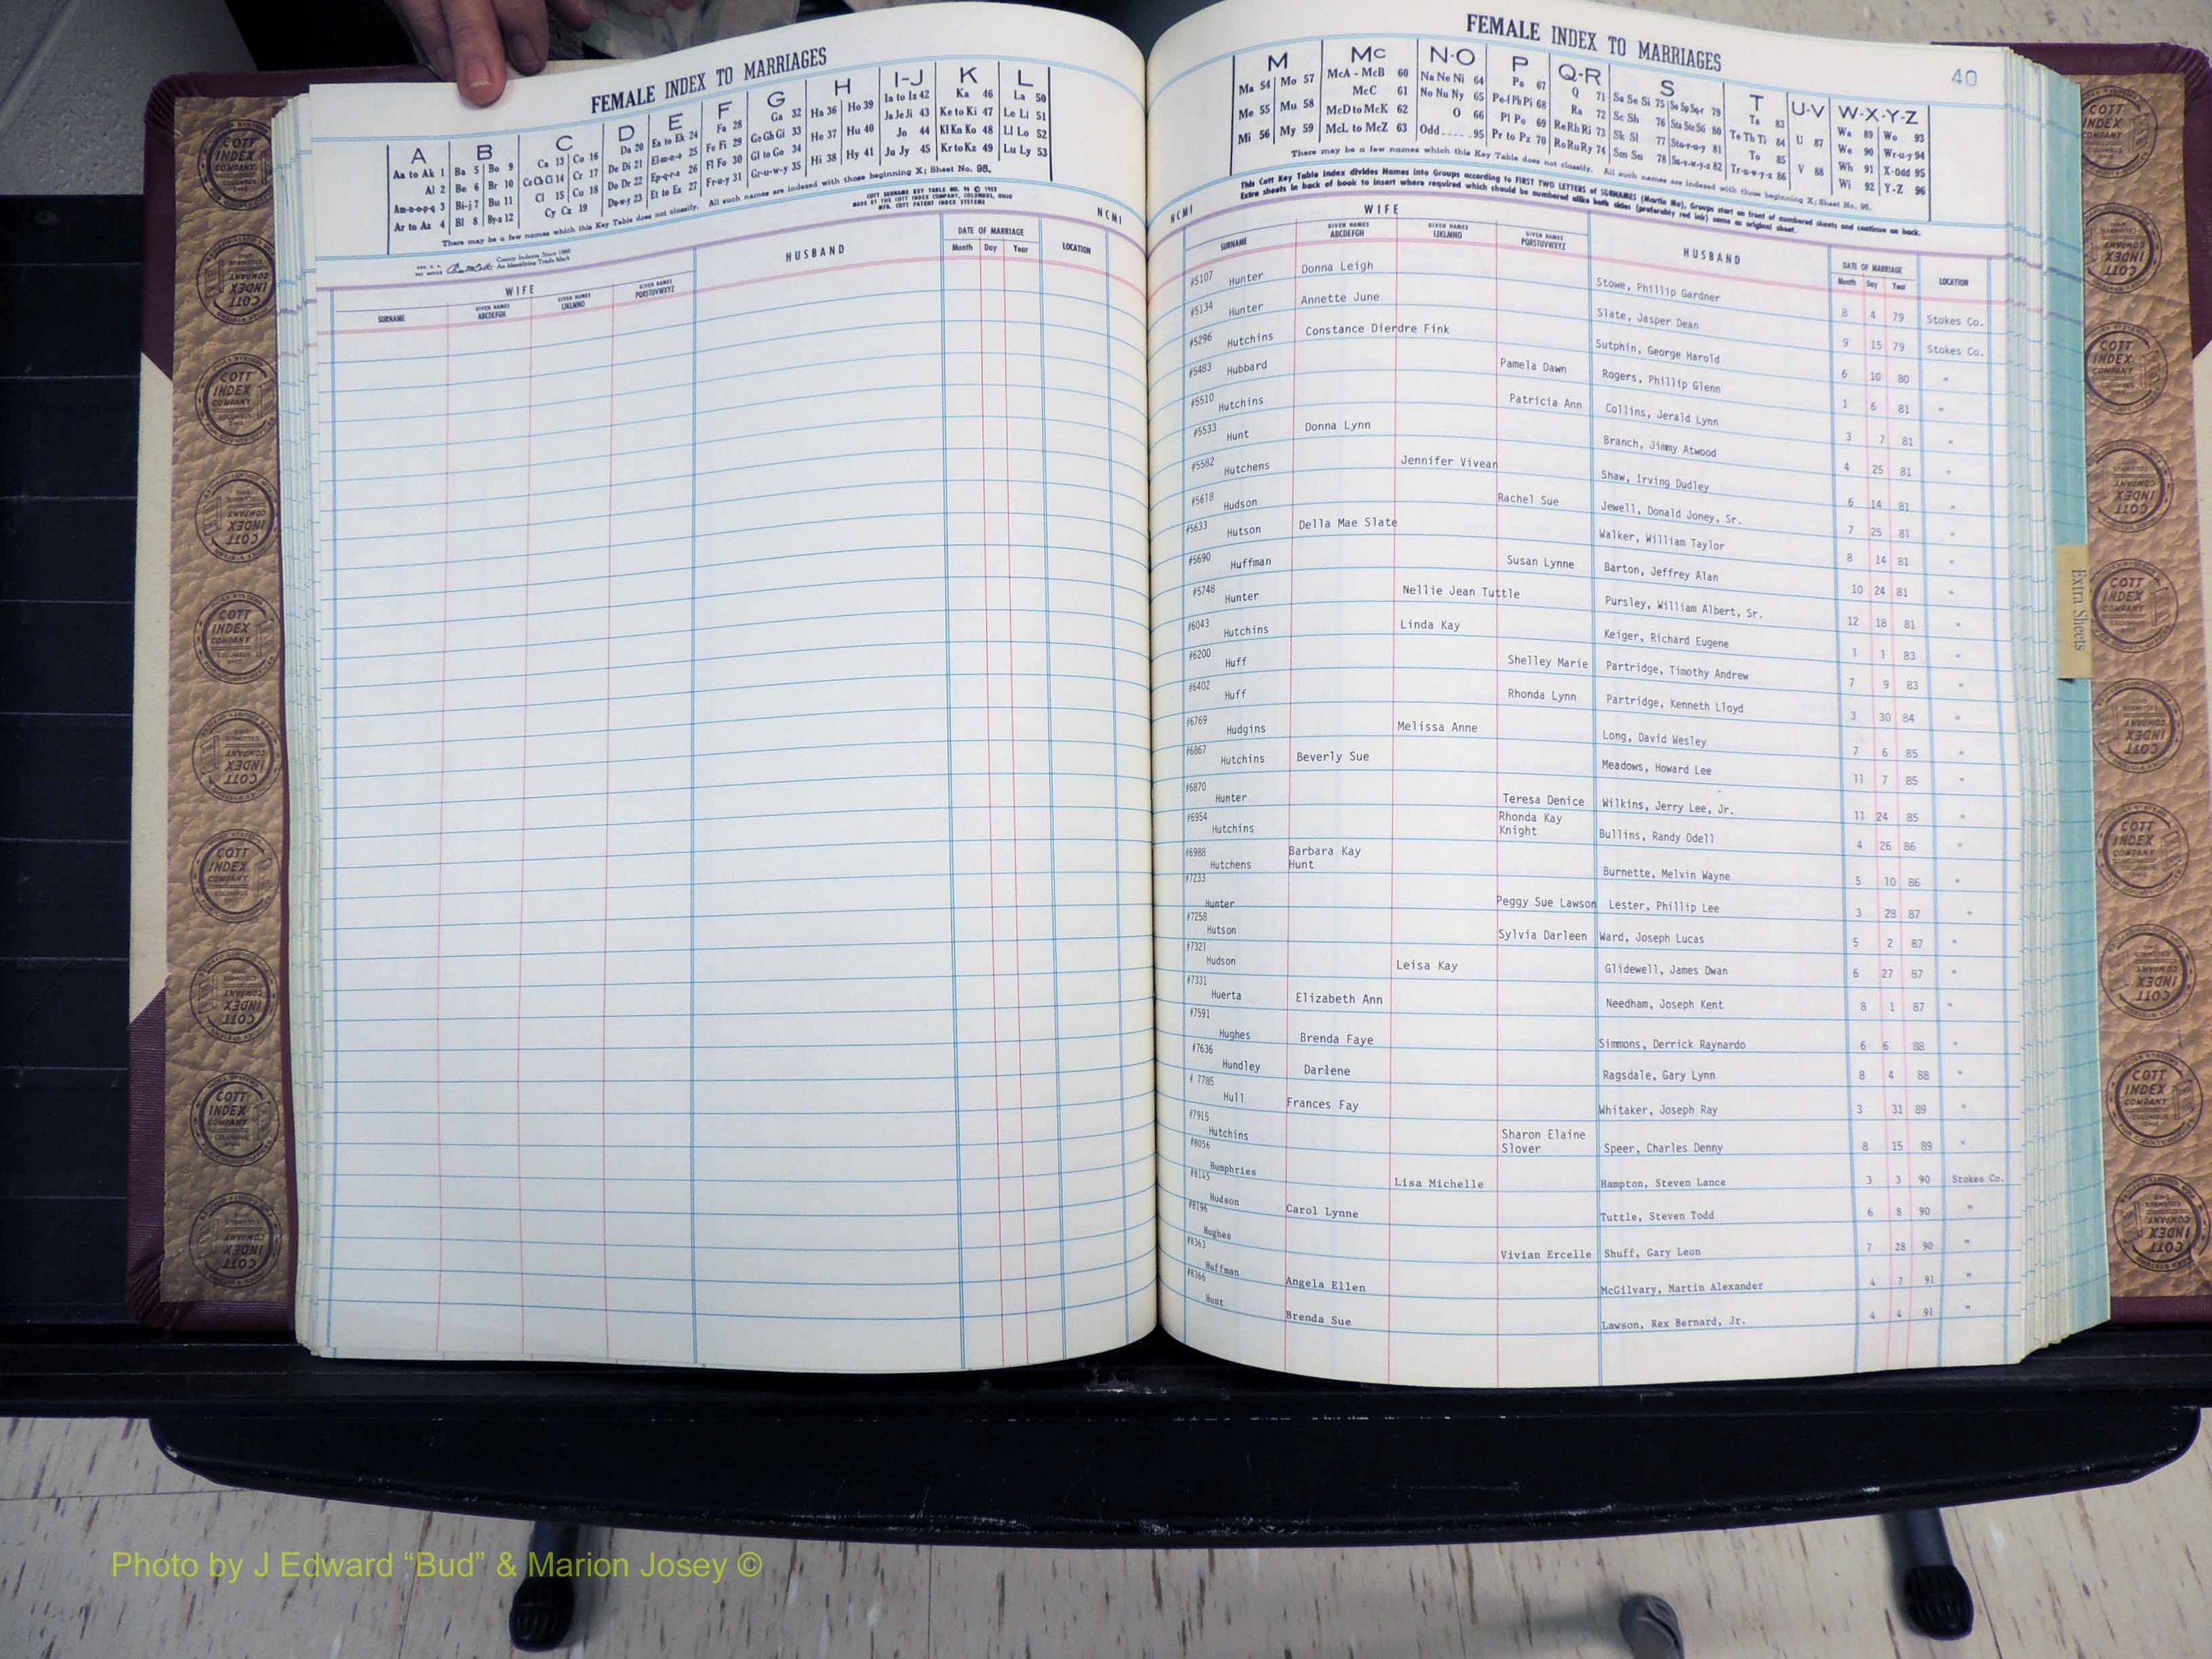 FEMALE INDEX TO MARRIAGES
A B C D E F G H I-J K L
Aa to Ak 1 Ba 5 Bo 9 Ca 13 Co 16 Da 20 Ea to Ek 24 Fa 28 Ga 32 Ha 36 Ho 39 Ia to Iz 42 Ka 46 La 50
Al 2 Be 6 Br 10 Ce Ch Ci 14 Cr 17 De Di 21 El-m-n-o 25 Fe Fi 29 Ge Gh Gi 33 He 37 Hu 40 Ja Je Ji 43 Ke to Ki 47 Le Li 51
Am-n-o-p-q 3 Bi-j 7 Bu 11 Cl 15 Cu 18 Do Dr 22 Ep-q-r-s 26 Fl Fo 30 Gl to Go 34 Hi 38 Hy 41 Jo 44 Kl Kn Ko 48 Ll Lo 52
Ar to Az 4 Bl 8 By-z 12 Cy Cz 19 Du-w-y 23 Et to Ex 27 Fr-u-y 31 Gr-u-w-y 35 Ju Jy 45 Kr to Kz 49 Lu Ly 53
There may be a few names which this Key Table does not classify. All such names are indexed with those beginning X; Sheet No. 95.
NCMI
WIFE HUSBAND DATE OF MARRIAGE LOCATION
SURNAME GIVEN NAMES ABCDEFGH GIVEN NAMES IJKLMNO GIVEN NAMES PQRSTUVWXYZ Month Day Year
FEMALE INDEX TO MARRIAGES
40
M Mc N-O P Q-R S T U-V W-X-Y-Z
Ma 54 Mo 57 McA - McB 60 Na Ne Ni 64 Pa 67 Q 71 Sa Se Si 75 Ta 83 U 87 Wa 89 Wo 93
Me 55 Mu 58 McC 61 No Nu Ny 65 Pe-f Ph Pi 68 Ra 72 Sc Sh 76 Sta Ste Sti 80 Te Th Ti 84 V 88 We 90 Wr-u-y 94
Mi 56 My 59 McD to McK 62 O 66 Pl Po 69 Re Rh Ri 73 Sk Sl 77 Sto-r-u-y 81 To 85 Wh 91 X-Odd 95
McL to McZ 63 Odd 95 Pr to Pz 70 Ro Ru Ry 74 Sm Sn 78 Su-v-w-y-z 82 Tr-u-w-y-z 86 Wi 92 Y-Z 96
There may be a few names which this Key Table does not classify. All such names are indexed with those beginning X; Sheet No. 95.
This Cott Key Table Index divides Names into Groups according to FIRST TWO LETTERS of SURNAMES (Martin Ma), Groups start on front of numbered sheets and continue on back.
Extra sheets in back of book to insert where required which should be numbered alike both sides (preferably red ink) same as original sheet.
NCMI
WIFE HUSBAND DATE OF MARRIAGE LOCATION
SURNAME GIVEN NAMES ABCDEFGH GIVEN NAMES IJKLMNO GIVEN NAMES PQRSTUVWXYZ Month Day Year
#5107 Hunter Donna Leigh Stowe, Phillip Gardner 8 4 79 Stokes Co.
#5134 Hunter Annette June Slate, Jasper Dean 9 15 79 Stokes Co.
#5296 Hutchins Constance Dierdre Fink Sutphin, George Harold 6 10 80 "
#5483 Hubbard Pamela Dawn Rogers, Phillip Glenn 1 6 81 "
#5510 Hutchins Patricia Ann Collins, Jerald Lynn 3 7 81 "
#5533 Hunt Donna Lynn Branch, Jimmy Atwood 4 25 81 "
#5582 Hutchens Jennifer Vivean Shaw, Irving Dudley 6 14 81 "
#5618 Hudson Rachel Sue Jewell, Donald Joney, Sr. 7 25 81 "
#5633 Hutson Della Mae Slate Walker, William Taylor 8 14 81 "
#5690 Huffman Susan Lynne Barton, Jeffrey Alan 10 24 81 "
#5748 Hunter Nellie Jean Tuttle Pursley, William Albert, Sr. 12 18 81 "
#6043 Hutchins Linda Kay Keiger, Richard Eugene 1 1 83 "
#6200 Huff Shelley Marie Partridge, Timothy Andrew 7 9 83 "
#6402 Huff Rhonda Lynn Partridge, Kenneth Lloyd 3 30 84 "
#6769 Hudgins Melissa Anne Long, David Wesley 7 6 85 "
#6867 Hutchins Beverly Sue Meadows, Howard Lee 11 7 85 "
#6870 Hunter Teresa Denice Wilkins, Jerry Lee, Jr. 11 24 85 "
#6954 Hutchins Rhonda Kay Knight Bullins, Randy Odell 4 26 86 "
#6988 Hutchens Barbara Kay Hunt Burnette, Melvin Wayne 5 10 86 "
#7233 Hunter Peggy Sue Lawson Lester, Phillip Lee 3 28 87 "
#7258 Hutson Sylvia Darleen Ward, Joseph Lucas 5 2 87 "
#7321 Hudson Leisa Kay Glidewell, James Dwan 6 27 87 "
#7331 Huerta Elizabeth Ann Needham, Joseph Kent 8 1 87 "
#7591 Hughes Brenda Faye Simmons, Derrick Raynardo 6 6 88 "
#7636 Hundley Darlene Ragsdale, Gary Lynn 8 4 88 "
# 7785 Hull Frances Fay Whitaker, Joseph Ray 3 31 89 "
#7915 Hutchins Sharon Elaine Slover Speer, Charles Denny 8 15 89 "
#8056 Humphries Lisa Michelle Hampton, Steven Lance 3 3 90 Stokes Co.
#8145 Hudson Carol Lynne Tuttle, Steven Todd 6 8 90 "
#8196 Hughes Vivian Ercelle Shuff, Gary Leon 7 28 90 "
#8363 Huffman Angela Ellen McGilvary, Martin Alexander 4 7 91 "
#8366 Hunt Brenda Sue Lawson, Rex Bernard, Jr. 4 4 91 "
Extra Sheets
COTT INDEX COMPANY
Photo by J Edward “Bud” & Marion Josey ©